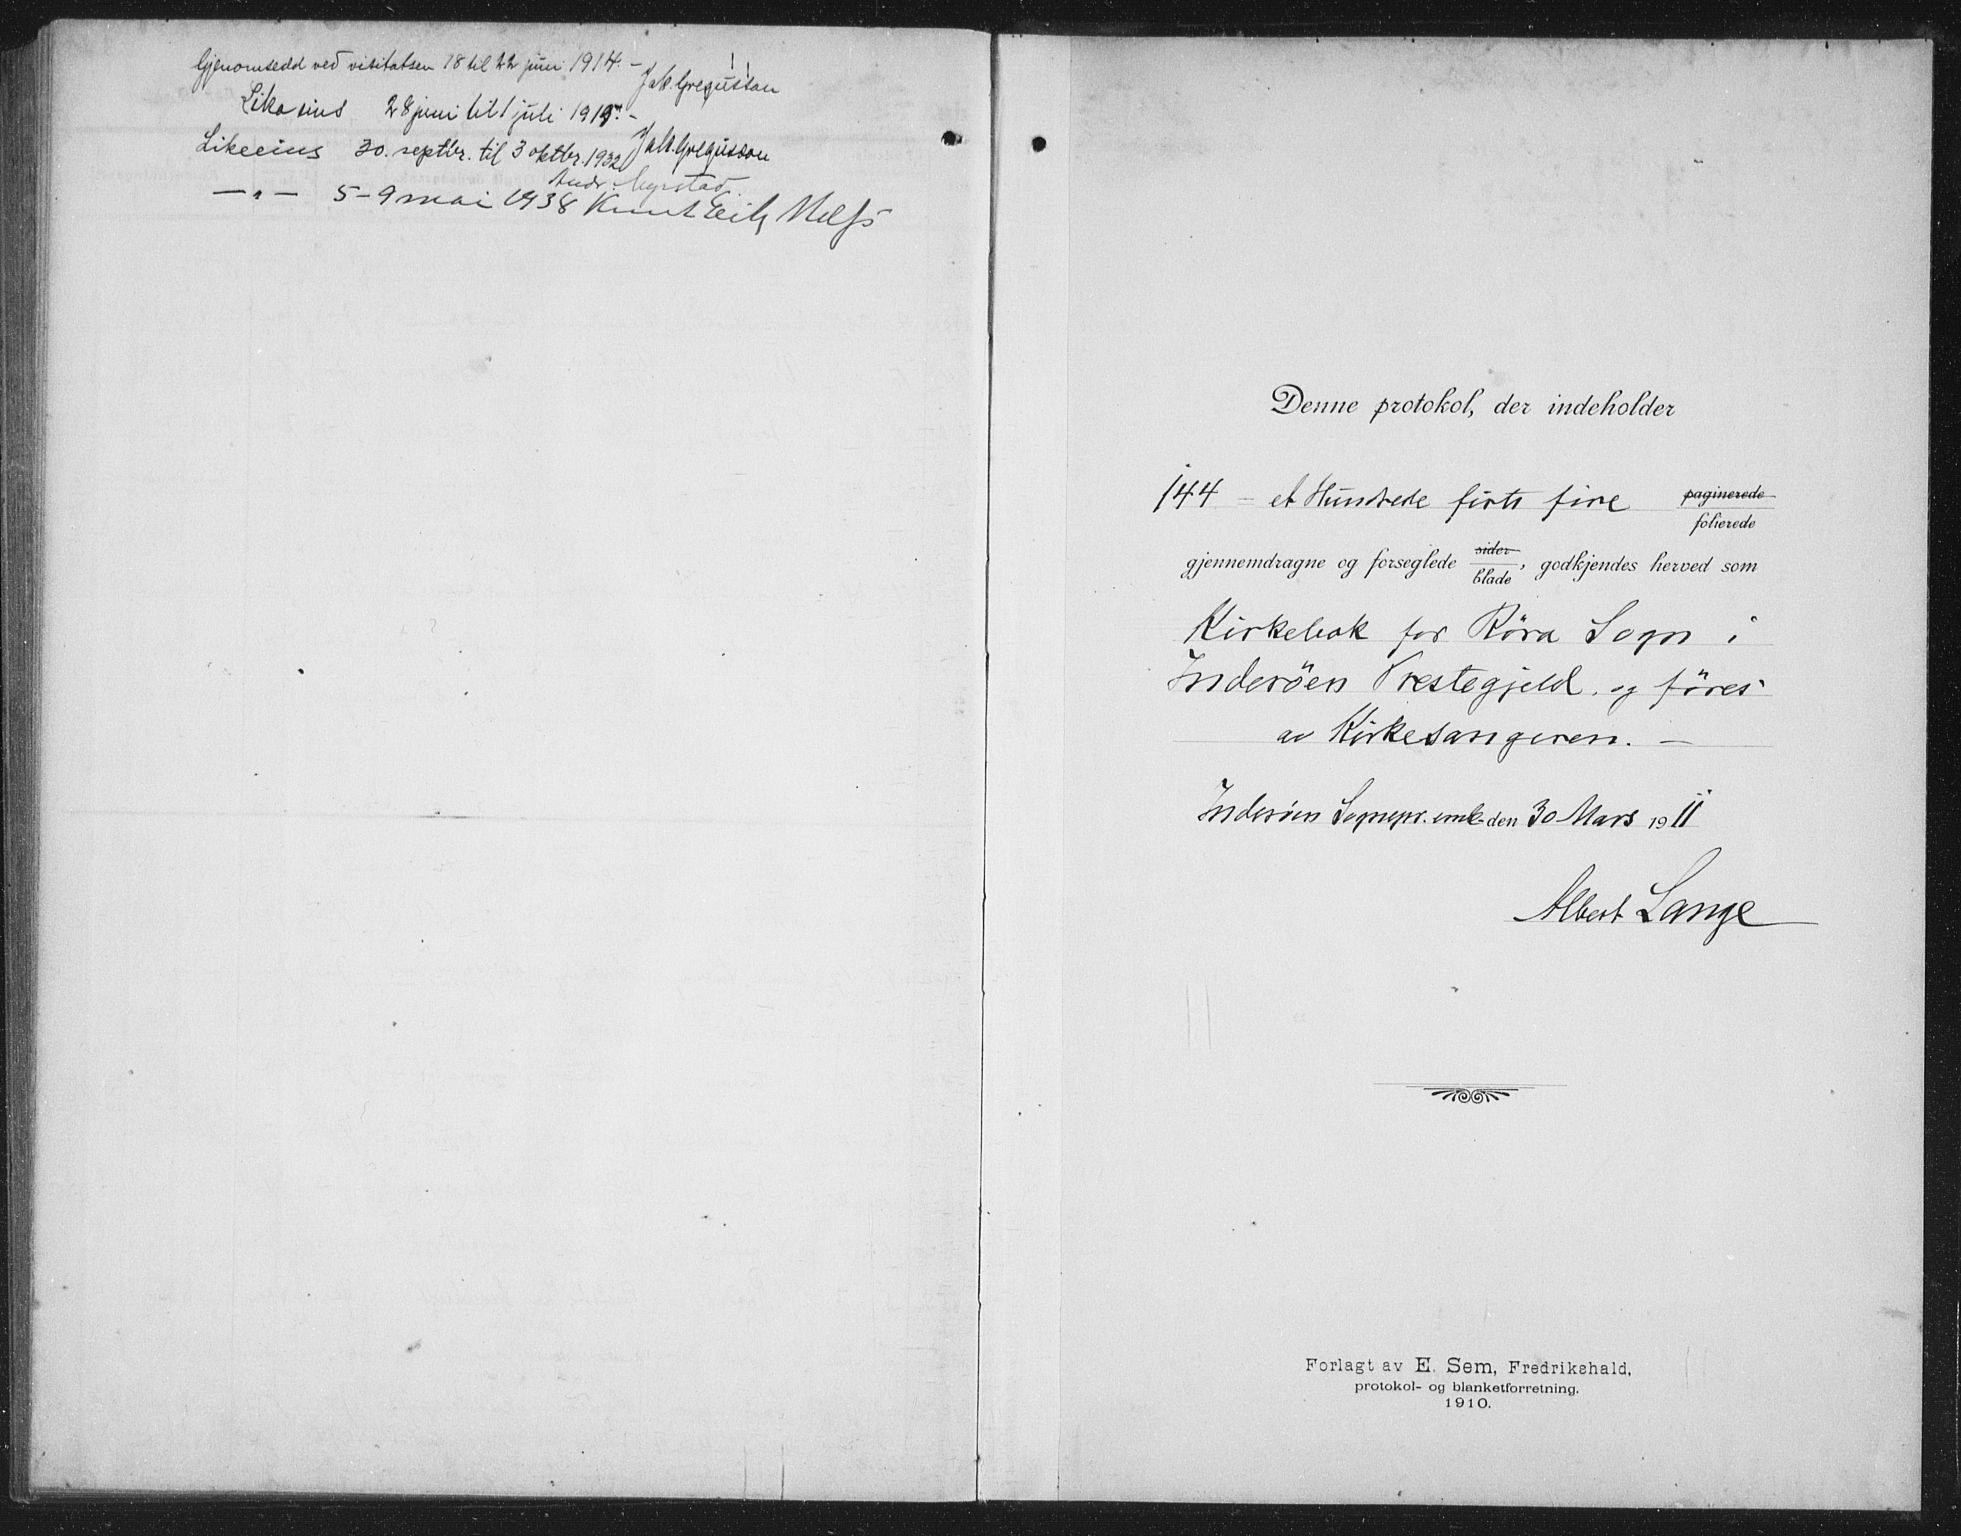 Gjenomsedd ved visitatsen 18 til 22 juni 1914. –
Jak. Gregusson
Likasins 28 juni til 1 juli 1919. –
Jak. Gregusson
Likeeins 30. septbr. til 3 oktbr. 1932
Andr.
— " — 5 – 9 mai 1938 Knut Eik
Denne protokol, der indeholder
144 – et Hundrede firti fire paginerede
folierede
gjennemdragne og forseglede sider
blade, godkjendes herved som
Kirkebok for Röra Sogn i
Inderöen Prestegjeld. og föres
av Kirkesangeren. –
Inderöen Sognepr. emb. den 30 Mars 1911
Albert Lange
Forlagt av E. Sem, Fredrikshald,
protokol- og blanketforretning.
1910.